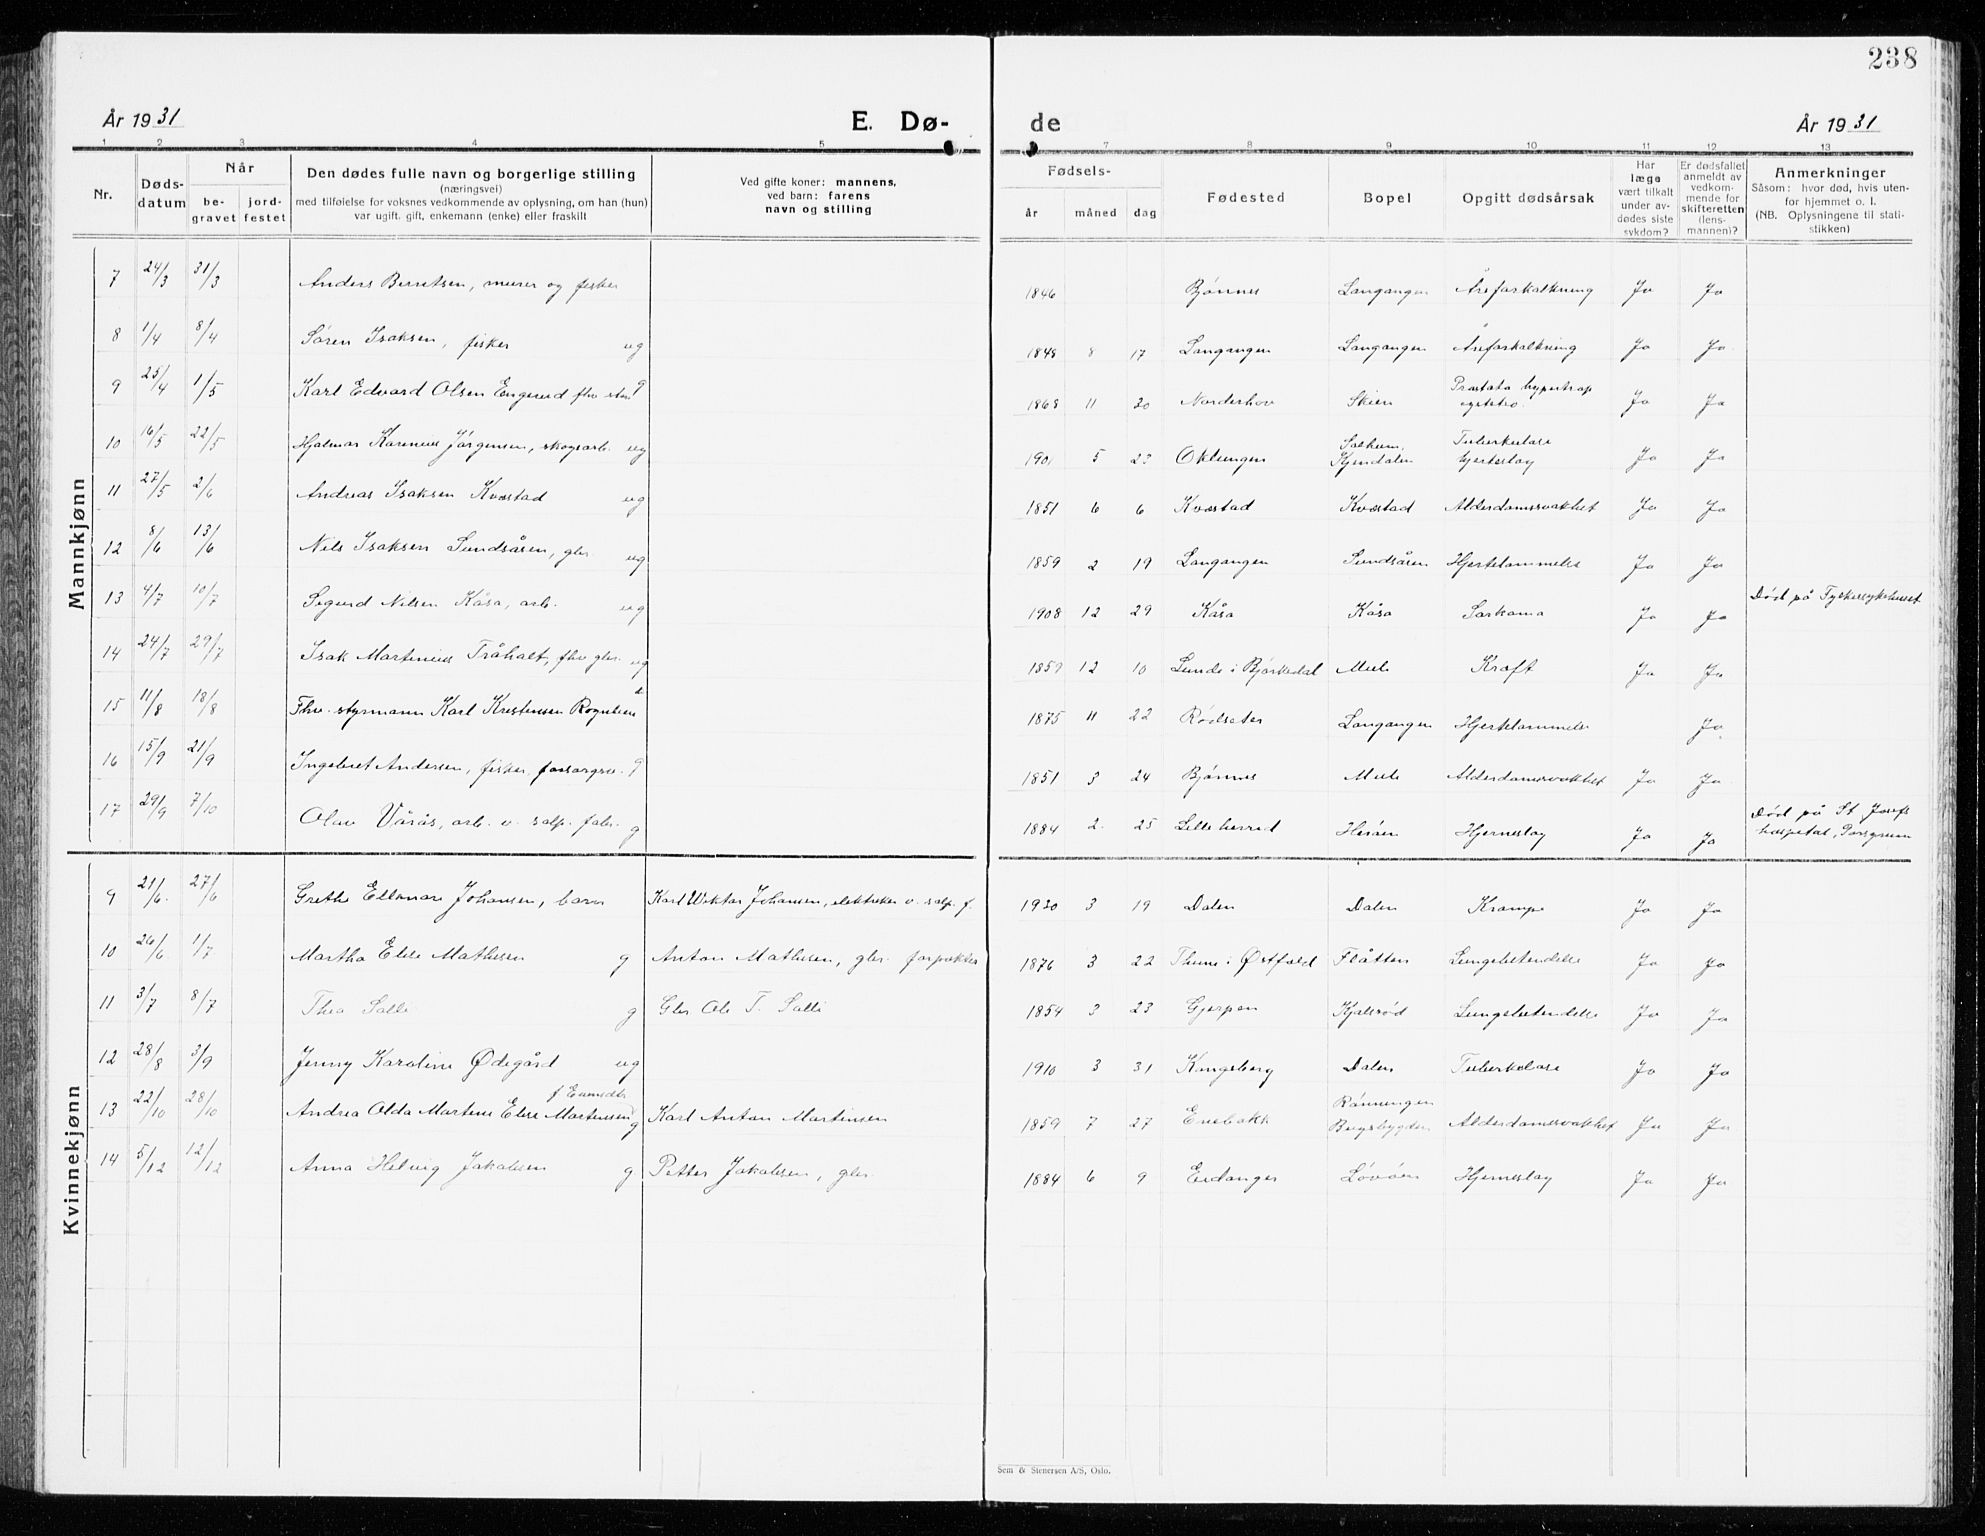 238
År 1931
E. Dø-
de
År 1931
1 2 3 4 5 7 8 9 10 11 12 13
Nr.
Døds-
datum
Når
be-
gravet
jord-
festet
Den dødes fulle navn og borgerlige stilling
(næringsvei)
med tilføielse for voksnes vedkommende av oplysning, om han (hun)
var ugift, gift, enkemann (enke) eller fraskilt
Ved gifte koner: mannens,
ved barn: farens
navn og stilling
Fødsels-
år måned dag
Fødested
Bopel
Opgitt dødsårsak
Har
læge
vært tilkalt
under av-
dødes siste
sykdom?
Er dødsfallet
anmeldt av
vedkom-
mende for
skifteretten
(lens-
mannen)?
Anmerkninger
Såsom: hvor død, hvis uten-
for hjemmet o. l.
(NB. Oplysningene til stati-
stikken)
Mannkjønn
7 24/3 31/3 Anders Berntsen, murer og fisker 1846 Bjønnes Langangen Åreforkalkning Ja Ja
8 1/4 8/4 Søren Isaksen, fisker ug 1848 8 17 Langangen Langangen Åreforkalkning Ja Ja
9 25/4 1/5 Karl Edvard Olsen Engerud fhv g 1868 11 30 Norderhov Skien Prostata hypertrop Ja Ja
10 16/5 22/5 Hjalmar Karenius Jørgensen, skogsarb. ug 1901 5 23 Oklungen Solheim, Kjendalen Tuberkulose hjerteslag Ja Ja
11 27/5 2/6 Andreas Isaksen Kvæstad ug 1851 6 6 Kvæstad Kvæstad Alderdomssvakhet Ja Ja
12 8/6 13/6 Nils Isaksen Sundsåsen, gbr. ug 1859 2 19 Langangen Sundsåsen Hjertelammelse Ja Ja
13 4/7 10/7 Sigurd Nilsen Kåsa, arb. ug 1908 12 29 Kåsa Kåsa Sarkoma Ja Ja Død på Fylkessykehuset
14 24/7 29/7 Isak Martinius Tråholt, fhv gbr. ug 1859 12 10 Lunde i Bjørkedal Mule Kræft Ja Ja
15 11/8 18/8 Fhv. styrmann Karl Kristensen Rognlien 1875 11 22 Rødseter Langangen Hjertelammelse Ja
16 15/9 21/9 Ingebret Andersen, fisker, forsorgsv. g 1851 3 24 Bjønnes Mule Alderdomssvakhet Ja Ja
17 29/9 7/10 Olav Vårås, arb. v. salp. fabr. g 1884 2 25 Lilleherred Herøen Hjerneslag Ja Ja Død på St Josefs
hospital, Porsgrunn
Kvinnekjønn
9 21/6 27/6 Grethe Ellonore Johansen, barn Karl Viktor Johansen, elektriker v. salp. f. 1930 3 19 Dalen Dalen Krampe Ja Ja
10 26/6 1/7 Martha Elise Mathisen g Anton Mathisen, gbr. forpakter 1876 3 22 Thune i Østfold Flåtten Lungebetendelse Ja Ja
11 3/7 8/7 Thea Solli g Gbr Ole T. Solli 1854 3 23 Gjerpen Kjølsrød Lungebetendelse Ja Ja
12 28/8 3/9 Jenny Karoline Ødegård ug 1910 3 31 Kongsberg Dalen Tuberkulose Ja Ja
13 22/10 28/10 Andrea Olda Martine Elise Martinsen g Karl Anton Martinsen 1859 7 27 Enebakk Rønningen Bugsbygden Alderdomssvakhet Ja Ja
14 5/12 12/12 Anna Helvig Jakobsen g Petter Jakobsen, gbr. 1884 6 9 Eidanger Løvøen Hjerneslag Ja Ja
Sem & Stenersen A/S, Oslo.